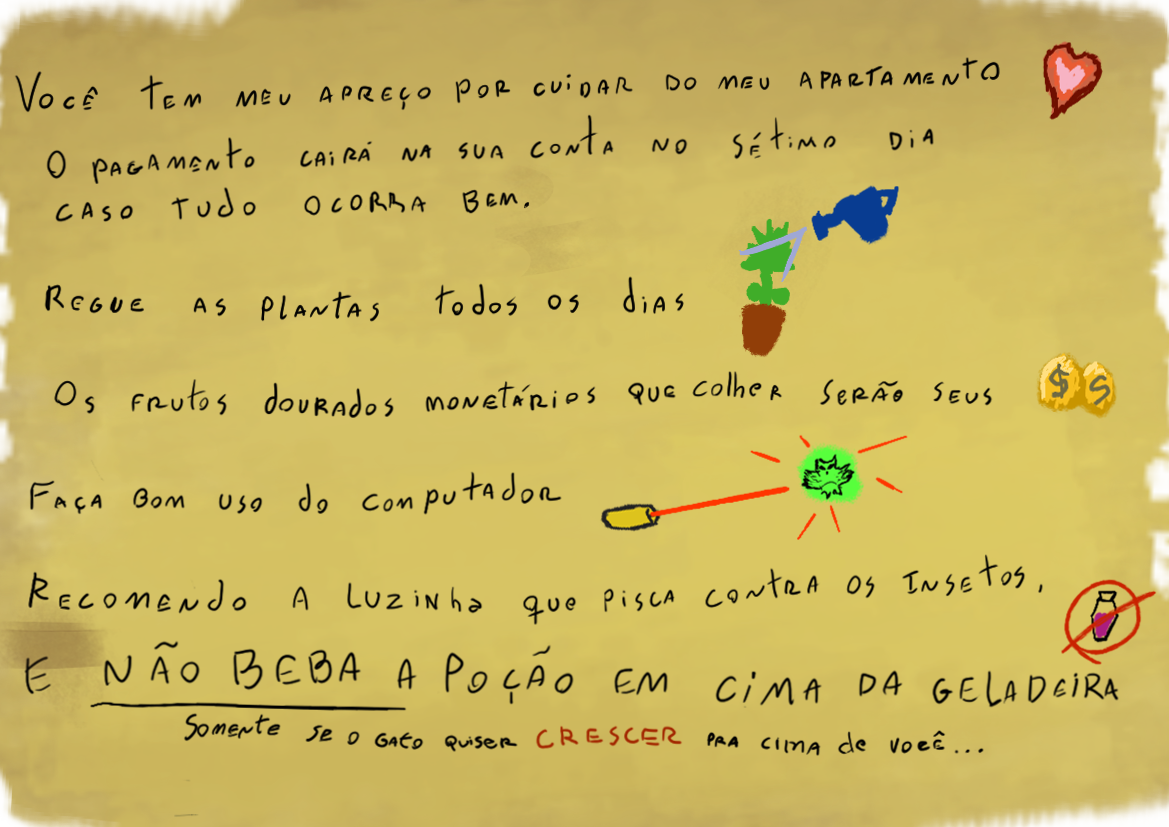 Você tem meu apreço por cuidar do meu apartamento
O pagamento cairá na sua conta no sétimo dia
caso tudo ocorra bem.
Regue as plantas todos os dias
Os frutos dourados monetários que colher serão seus
$ S
Faça bom uso do computador
Recomendo a luzinha que pisca contra os insetos.
E NÃO BEBA a poção em cima da geladeira
Somente se o gato quiser CRESCER pra cima de você...